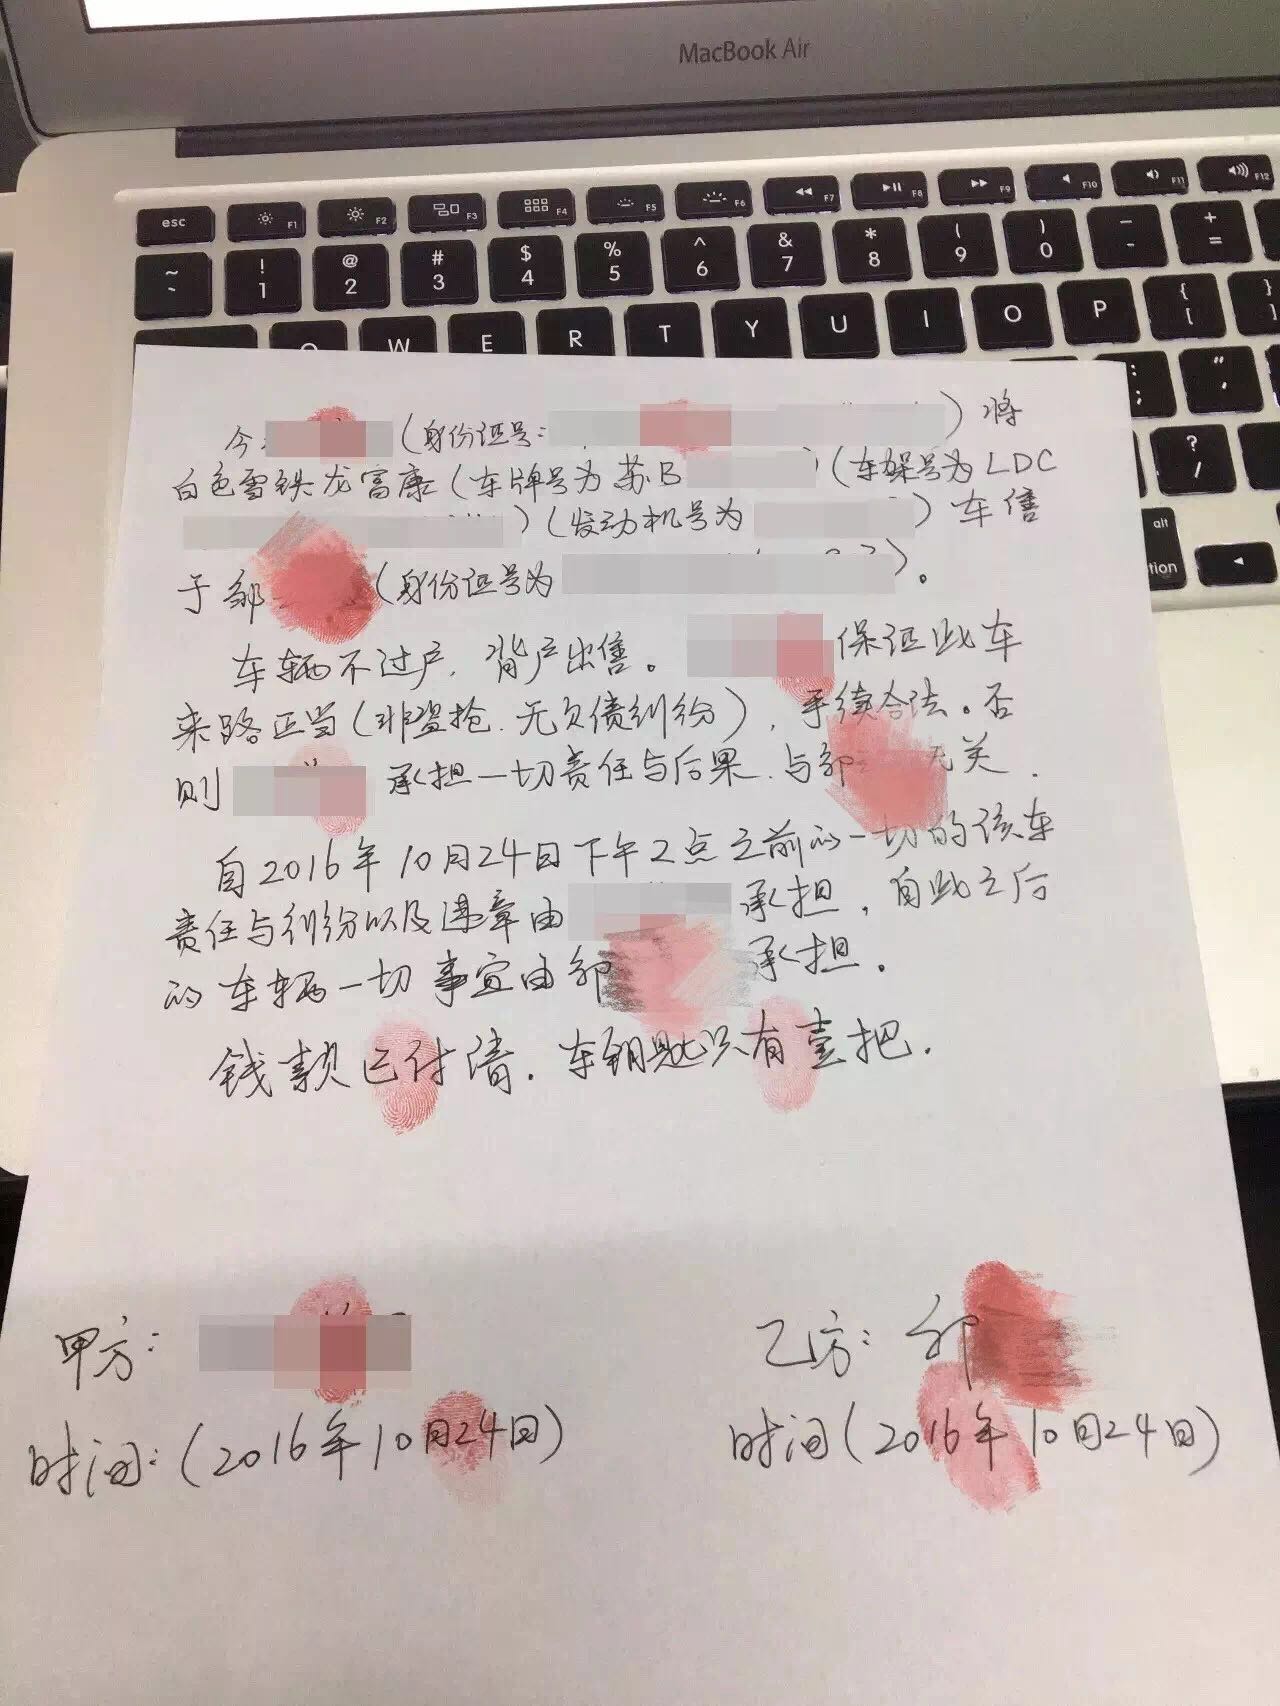 MacBook Air
esc F1 F2 F3 F4 F5 F6 F7 F8 F9 F10 F11 F12
~ ` ! 1 @ 2 # 3 $ 4 % 5 ^ 6 & 7 * 8 ( 9 ) 0 _ - + =
Q W E R T Y U I O P { [ } ]
: ; " '
? /
alt
option
今 (身份证号: ) 将
白色雪铁龙富康 (车牌号为苏B ) (车架号为LDC
) (发动机号为 ) 车售
于邹 (身份证号为 )。
车辆不过户, 背户出售。 保证此车
来路正当 (非盗抢、无负债纠纷), 手续合法。否
则 承担一切责任与后果、与邹 无关.
自2016年10月24日下午2点之前的一切的该车
责任与纠纷以及违章由 承担, 自此之后
的车辆一切事宜由邹 承担.
钱款已付清. 车钥匙只有壹把.
甲方: 乙方: 邹
时间: (2016年10月24日) 时间 (2016年10月24日)